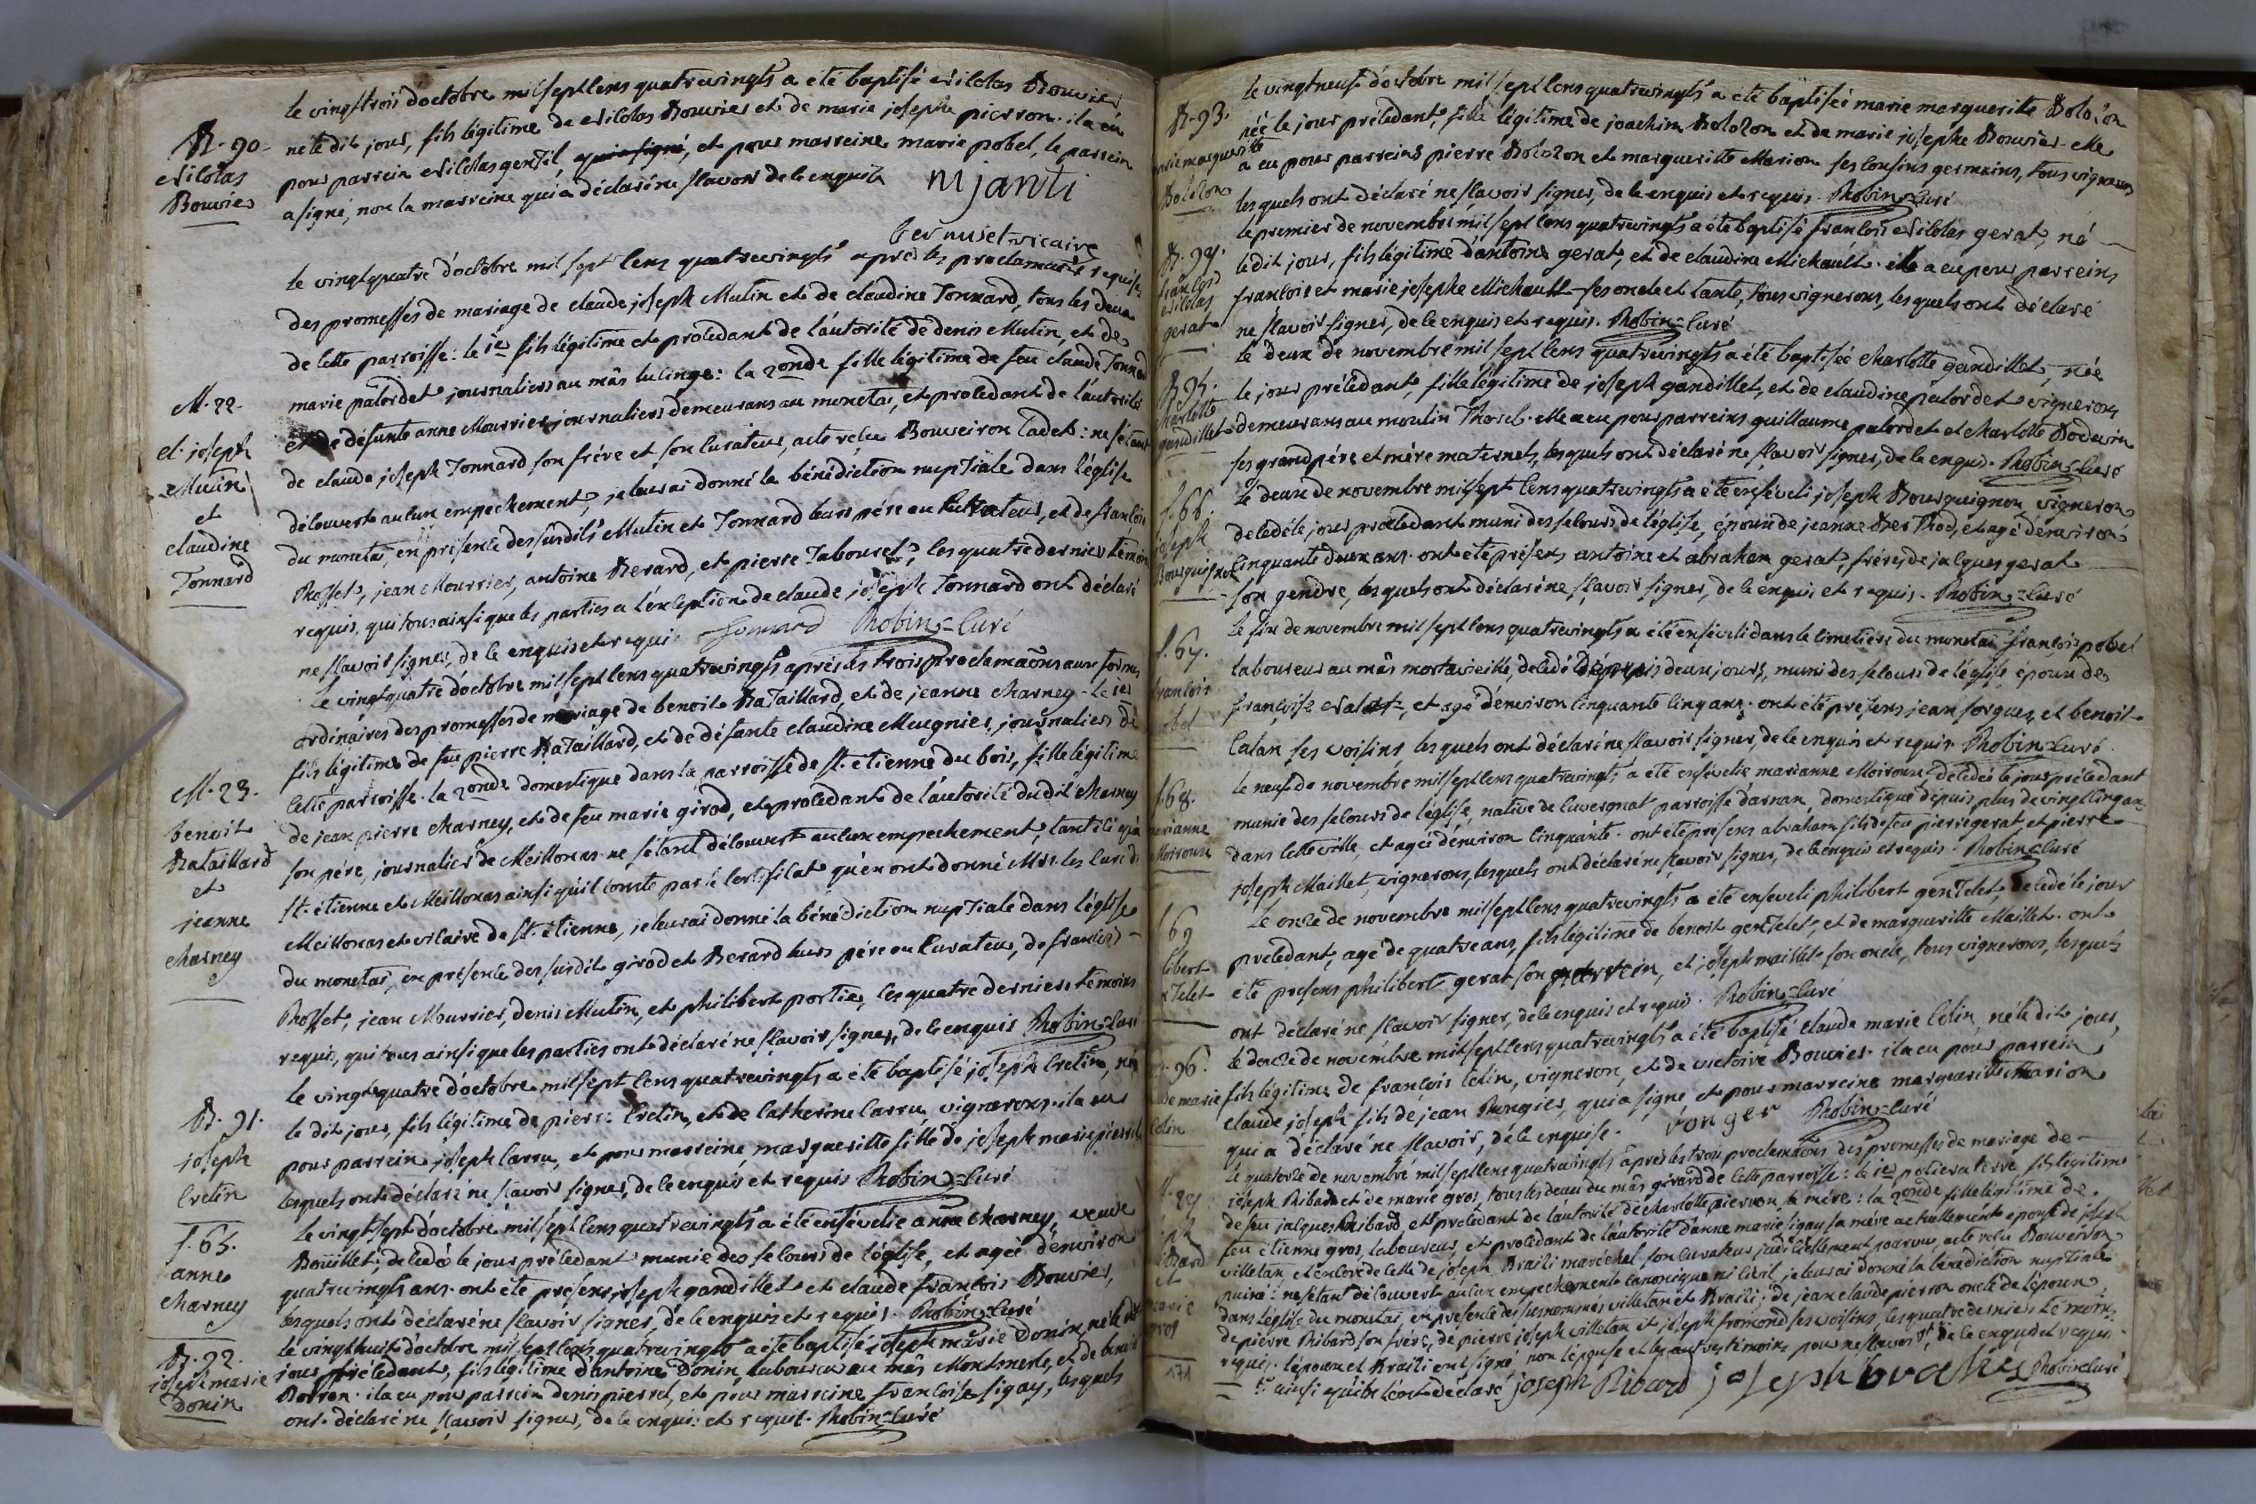 le vingttrois d'octobre mil sept cens quatrevingts a été baptisé Nicolas Bouvier
B. 90. Nicolas Bouvier
né le dit jour, fils légitime de Nicolas Bouvier et de marie josephe pierron. il a eu
pour parrein Nicolas gentil, qui a signé, et pour marreine marie pobel, le parrein
a signé, non la marreine qui a déclaré ne sçavoir de ce enquise njanti
bernuset vicaire
le vingtquatre d'octobre mil sept cens quatrevingts après les proclamaōns requises
des promesses de mariage de claude joseph Mutin et de claudine Tonnard, tous les deux
de cette parroisse: le 1er fils légitime et procedant de l'autorité de denis Mutin, et de
marie palordet journaliers au mâs lucinge: la 2onde fille légitime de feu claude Tonnard
M. 22. cl. joseph Mutin et claudine Tonnard
et de défunte anne Mourrier journaliers demeurans au monetai, et procedant de l'autorité
de claude joseph Tonnard son frére et son curateur, acte reçu Bouveiron cadet: ne s'étant
découvert aucun empechement, je leur ai donné la bénédiction nuptiale dans l'église
du monetai, en présence des susdits Mutin et Tonnard leurs pére ou curateur, et de françois
Rosset, jean Mourrier, antoine Berard, et pierre Tabouret, les quatre derniers témoins
requis, qui tous ainsi que les parties a l'exception de claude joseph Tonnard ont déclaré
ne sçavoir signer, de ce enquis et requis Tonnard Robin curé
le vingtquatre d'octobre mil sept cens quatrevingts après les trois proclamaōns aux formes
ordinaires des promesses de mariage de benoit Bataillard, et de jeanne charney. le 1er
fils légitime de feu pierre Bataillard, et de défunte claudine Mugnier, journaliers de
M. 23. benoit Bataillard et jeanne charney
cette parroisse. la 2onde domestique dans la parroisse de St. etienne du bois, fille légitime
de jean pierre charney, et de feu marie girod, et procedant de l'autorité dudit charney
son pére, journalier de Meillonas. ne s'étant découvert aucun empechement, tant ici qu'a
St. étienne et Meillonas ainsi qu'il conste par le certificat qu'en ont donné Mrs. les curé de
Meillonas et vicaire de St. étienne, je leur ai donné la bénédiction nuptiale dans l'église
du monetai, en présence des susdits girod et Berard leurs pére ou curateur, de françois
Rosset, jean Mourrier, denis Mutin, et philibert portier, les quatre derniers témoins
requis, qui tous ainsi que les parties ont déclaré ne sçavoir signer, de ce enquis Robin curé
le vingtquatre d'octobre mil sept cens quatrevingts a été baptisé joseph Cretin, né
B. 91. joseph Cretin
le dit jour, fils légitime de pierre Cretin, et de Catherine Carru, vignerons. il a eu
pour parrein joseph Carru, et pour marreine marguerite fille de joseph marie pierrel
lesquels ont déclaré ne sçavoir signer, de ce enquis et requis Robin curé
f. 65. anne charney
le vingtsept d'octobre mil sept cens quatrevingts a été ensévelie anne charney, veuve
Bouillet, decedée le jour précedant munie des secours de l'église, et agée d'environ
quatrevingts ans. ont été présens joseph gandillet et claude françois Bouvier,
lesquels ont déclaré ne sçavoir signer, de ce enquis et requis. Robin curé
B. 92. joseph marie Donin
le vingthuit d'octobre mil sept cens quatrevingts a été baptisé joseph marie Donin, né le
jour précedant, fils légitime d'antoine Donin, laboureur au mâs Montmerle, et de benoite
Borron. il a eu pour parrein denis pierrel, et pour marreine françoise figay, lesquels
ont déclaré ne sçavoir signer, de ce enquis et requis. Robin curé
le vingtneuf d'octobre mil sept cens quatrevingts a été baptisée marie marguerite Dolozon
B. 93. marie marguerite Dolozon
née le jour précedant, fille légitime de joachim Dolozon et de marie josephe Bouvier. elle
a eu pour parreins pierre Dolozon et marguerite Marion ses cousins germains, tous vignerons,
lesquels ont déclaré ne sçavoir signer, de ce enquis et requis. Robin curé
le premier de novembre mil sept cens quatrevingts a été baptisé françois Nicolas gerat, né
B. 94. françois Nicolas gerat
le dit jour, fils légitime d'antoine gerat, et de claudine Michault. il a eu pour parreins
françois et marie josephe Michault ses oncle et tante, tous vignerons, lesquels ont déclaré
ne sçavoir signer, de ce enquis et requis. Robin curé
le deux de novembre mil sept cens quatrevingts a été baptisée charlotte gandillet, née
B. 95. charlotte gandillet
le jour précedant, fille légitime de joseph gandillet, et de claudine palordet vignerons,
demeurans au moulin Thorel. elle a eu pour parreins guillaume palordet et charlotte Boderin
ses grand pére et mére maternels, lesquels ont déclaré ne sçavoir signer, de ce enquis. Robin curé
f. 66. joseph Bourguignon
le deux de novembre mil sept cens quatrevingts a été enséveli joseph Bourguignon, vigneron
decedé le jour précedant muni des secours de l'église, époux de jeanne Berthod, et agé d'environ
cinquante deux ans. ont été présens antoine et abraham gerat, fréres de jacques gerat
son gendre, lesquels ont déclaré ne sçavoir signer, de ce enquis et requis. Robin curé
f. 67. françois pobel
le six de novembre mil sept cens quatrevingts a été enséveli dans le cimetiére du monetai françois pobel
laboureur au mâs mortvieille, decedé depuis deux jours, muni des secours de l'église époux de
françoise Nalet, et agé d'environ cinquante cinq ans. ont été présens jean sorgues, et benoit
Calan ses voisins, lesquels ont déclaré ne sçavoir signer, de ce enquis et requis Robin curé
f. 68. marianne Moiroux
le neuf de novembre mil sept cens quatrevingts a été ensévelie marianne Moiroux decedée le jour précedant
munie des secours de l'église, native de Cuveronat parroisse d'arnan, domestique depuis plus de vingt cinq ans
dans cette ville, et agée d'environ cinquante. ont été présens abraham fils de feu pierre gerat, et pierre
joseph Maillet, vignerons, lesquels ont déclaré ne sçavoir signer, de ce enquis et requis. Robin curé
f. 69 philibert genTelet
le onze de novembre mil sept cens quatrevingts a été enséveli philibert genTelet, decedé le jour
précedant, agé de quatre ans, fils légitime de benoit genTelet, et de marguerite Maillet. ont
été présens philibert gerat son parrein, et joseph maillet son oncle, tous vignerons, lesquels
ont déclaré ne sçavoir signer, de ce enquis et requis. Robin curé
B. 96. claude marie Colin
le douze de novembre mil sept cens quatrevingts a été baptisé claude marie Colin, né le dit jour,
fils légitime de françois Colin, vigneron, et de victoire Bouvier. il a eu pour parrein
claude joseph fils de jean Rongier, qui a signé et pour marreine marguerite Marion
qui a déclaré ne sçavoir, de ce enquise. ronger Robin curé
le quatorze de novembre mil sept cens quatrevingts après les trois proclamaōns des promesses de mariage de
joseph Ribard et de marie gros, tous les deux du mâs girard de cette parroisse: le 1er fils légitime
de feu jacques Ribard, et procedant de l'autorité de charlotte pierron sa mére: la 2onde fille légitime de
feu étienne gros, laboureur, et procedant de l'autorité d'anne marie figay sa mére actuellement épouse de joseph
villetan et encore de celle de joseph Braili maréchal son curateur judiciellement pourvu, acte reçu Bouveiron
puiné: ne s'étant découvert aucun empechement canonique ni civil, je leur ai donné la bénédiction nuptiale
dans l'église du monetai, en présence des susnommés villetan et Braili; de jean claude pierron oncle de l'époux,
de pierre Ribard son frére, de pierre joseph villetan et joseph fromond ses voisins, les quatre derniers témoins
requis. l'époux et Braili ont signé, non l'épouse et les autres témoins pour ne sçavoir, de ce enquis et requis
ainsi qu'ils l'ont déclaré joseph Ribard joseph brahy Robin curé
171